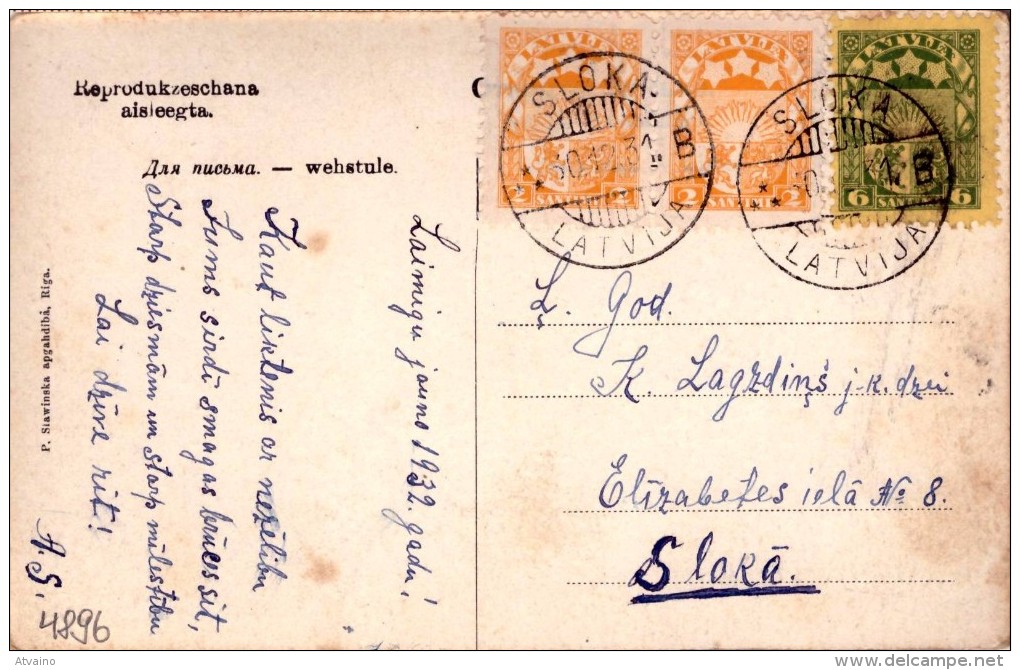 Reprodukzeschana
aisleegta.
Для письма. — wehstule.
P. Slawinska apgahdibâ, Riga.
Laimigu jauno 1932. gadu!
Kaut liktenis ar nežēlibu
Jums sirdī smagas brūces sit,
Starp dziesmām un starp mīlestību
Lai dzīve rit!
A. S.
4896
LATVIJA
2 SANTIMI 2
LATVIJA
2 2
LATVIJA
6 SANTIMI 6
SLOKA
30.12.31
B
LATVIJA
SLOKA
B
LATVIJA
Ļ. God.
K. Lagzdiņš j-k. dzei
Elīzabetes ielā № 8.
Slokā.
Atvaino
delcampe.net